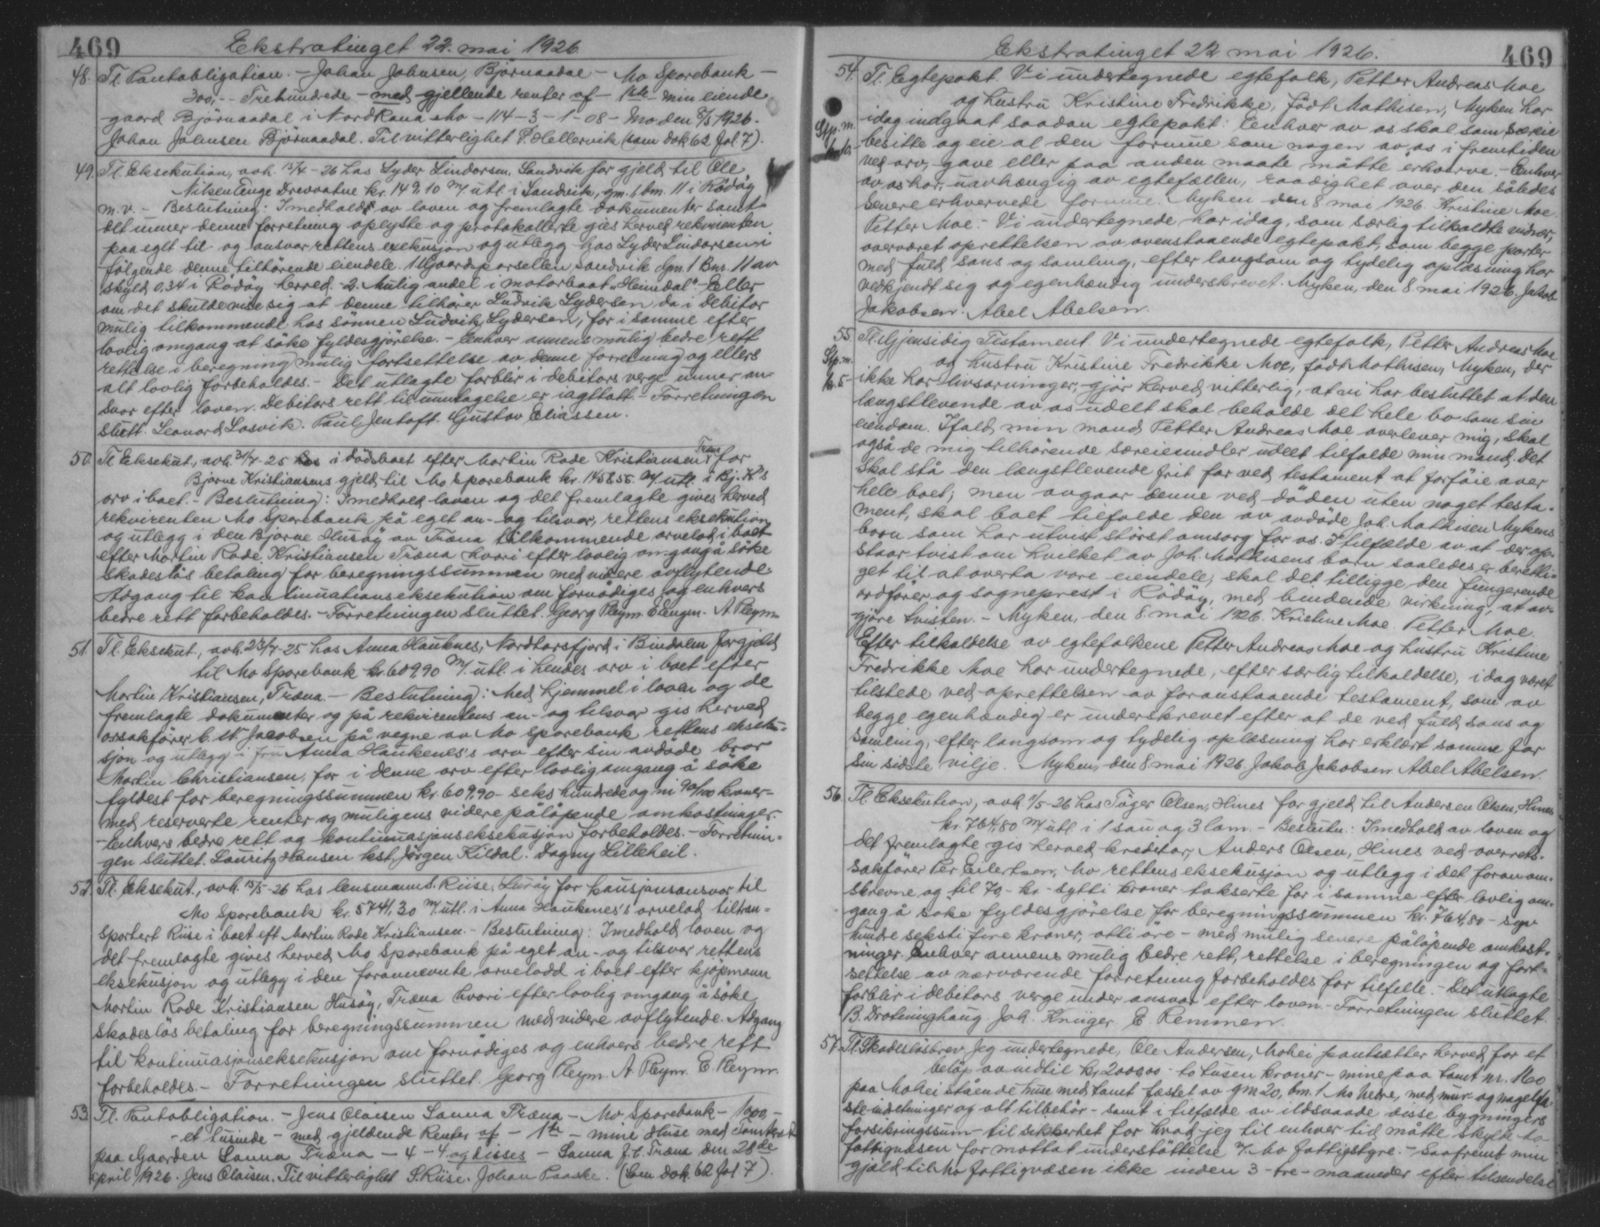 469
Ekstratinget 22. mai 1926
48. Tl. Pantobligation. - Johan Johnsen, Bjørnaadal - Mo Sparebank -
300,- - Trehundrede - med gjellende renter af - 1ste - min eiende
gaard Bjørnaadal i Nordrana Mo - 114 - 3 - 1 - 08 - Mo den 8/5 1926.
Johan Johnsen Bjørnaadal. Til vitterlighet P. Hellervik (som dok 62 fol 7).
49. Tl. Eksekution, avh. 15/4 - 26 hos Lyder Lindorsen Sandvik for gjeld til Ole
Nilsen Auge kr. 149.10 m/ utl. i Sandvik, gm. 1 bm. 11 i Rödöy
m.v. - Beslutning: I medhold av loven og fremlagte dokumenter samt
det under denne forretning oplyste og protokollerte gies herved rekvirenten
paa eget til- og ansvar rettens exekusjon og utlegg hos Lyder Lindorsen i
følgende denne tilhørende eiendele. 1. Gaardsparsellen Sandvik Gm. 1 Bm. 11 av
skyld 0.34 i Rödöy herred. 2. Mulig andel i motorbaat "Heimdal" - Eller
om det skulde vise sig at denne tilhører Ludvik Lydersen da i debitor
mulig tilkommende hos sønnen Ludvik Lydersen, for i samme efter
lovlig omgang at söke fyldesgjörelse. - Enhver annens mulig bedre rett
rettelse i beregning mulig fortsettelse av denne forretning og ellers
alt lovlig forbeholdes. - Det utlagte forblir i debitors verge under an-
svar efter loven. Debitors rett til undtagelse er iagttatt - Forretningen
slutt. Leonard Losvik. Paul Jentoft. Gustav Eliassen.
50. Tl. Eksekut., avh. 24/4 - 25 i dödsboet efter Martin Rode Kristiansen Træna for
Bjarne Kristiansens gjeld til Mo Sparebank kr. 1458.56 m/ utl. i Bj. K's
arv i boet - Beslutning: I medhold loven og det fremlagte gives herved
rekvirenten Mo Sparebank på eget an- og tilsvar, rettens eksekution
og utlegg i den Bjarne Husöy av Træna tilkommende arvelod i boet
efter Martin Rode Kristiansen Træna hvori efter lovlig omgang å söke
skadeslös betaling for beregningssummen med videre avflytende
Adgang til kontinuationseksekution om fornödiges og enhvers
bedre rett forbeholdes. - Forretningen sluttet. Georg Pleym E Pleym. A Pleym
51. Tl. Eksekut, avh. 27/4 - 25 hos Anna Haukenes, Nordhorsfjord i Bindalen for gjeld
til Mo Sparebank kr. 609.90 m/ utl. i hendes arv i boet efter
Martin Kristiansen, Træna - Beslutning: Med hjemmel i loven og de
fremlagte dokumenter og på rekvirentens an- og tilsvar gis herved
orsakförer C. M. Jacobsen på vegne av Mo Sparebank rettens ekseku-
sjon og utlegg i fru Anna Haukenes's arv efter sin avdöde bror
Martin Christiansen, for i denne arv efter lovlig omgang å söke
fyldest for beregningssummen kr. 609,90 - seks hundrede og ni 90/100 kroner -
med reserverte renter og muligens videre pålöpende omkostninger.
Enhvers bedre rett og kontinuasjonseksekusjon forbeholdes. - Forretnin-
gen sluttet. Lauritz Hansen kst, Jörgen Kildal. Dagny Lilleheil.
52. Tl. Eksekut, avh. 15/5 - 26 hos lensmann S. Riise, Luröy for kausjonsansvar til
Mo Sparebank kr. 5741,30 m/ utl. i Anna Haukenes's arvelod tiltran-
sportert Riise i boet eft Martin Rode Kristiansen - Beslutning: I medhold loven og
det fremlagte gives herved Mo Sparebank på eget an- og tilsvar rettens
eksekusjon og utlegg i den forannevnte arvelodd i boet efter kjöpmann
Martin Rode Kristiansen Husöy, Træna hvori efter lovlig omgang å söke
skadeslös betaling for beregningssummen med videre avflytende. Adgang
til kontinuasjonseksekusjon om fornödiges og enhvers bedre rett
forbeholdes. - Forretningen sluttet. Georg Pleym. A Pleym. E. Pleym.
53. Tl. Pantobligation. - Jens Olaisen Sanna Træna - Mo Sparebank - 1000,-
- et tusinde - med gjeldende Renter af - 1ste - mine Huse med Tomtefeste
paa Gaarden Sanna Træna - 4 - 4 og disses - Sanna J. t. Træna den 28de
april 1926. Jens Olaisen. Til vitterlighet S. Riise. Johan Paaske. (som dok. 62 fol 7).
469
Ekstratinget 22 mai 1926.
54. Tl. Egtepakt. Vi undertegnede egtefolk, Petter Andreas Moe
og hustru Kristine Fredrikke, födt Mathisen, Myken har
idag indgaat saadan egtepakt: Enhver av os skal som særeie
Stp. m.
besitte og eie al den formue som nogen av os i fremtiden
ved arv, gave eller paa anden maate måtte erhverve. - Enhver
av os har, uavhængig av egtefællen, raadighet over den således
senere erhvervede formue. Myken den 8 mai 1926. Kristine Moe.
Petter Moe. - Vi undertegnede har idag, som særlig tilkaldte vidner,
overværet oprettelsen av ovenstaaende egtepakt, som begge parter
med fuld sans og samling, efter langsom og tydelig oplæsning har
vedkjendt sig og egenhændig underskrevet. Myken, den 8 mai 1926. Jakob
Jakobsen. Abel Abelsen.
55. Tl. Gjensidig Testament. Vi undertegnede egtefolk, Petter Andreas Moe
og hustru Kristine Fredrikke Moe, födt Mathisen, Myken, der
Stp. m.
kr. 5 -
ikke har livsarvinger, gjör herved vitterlig, at vi har besluttet at den
længstlevende av os udelt skal beholde det hele bo som sin
eiendom. Ifald min mand Petter Andreas Moe overlever mig, skal
også de mig tilhörende særeiemidler udelt tilfalde min mand. Det
skal stå den længstlevende frit for ved testament at forföie over
hele boet; men avgaar denne ved döden uten noget testa-
ment, skal boet tilfalde den av avdöde Joh. Mathisen Mykens
barn som har utvist störst omsorg for os. I tilfælde av at der op-
staar tvist om hvilket av Joh. Mathisens barn saaledes er beretti-
get til at overta vore eiendele, skal det tilligge den fungerende
ordförer og sogneprest i Rödöy, med bindende virkning, at av-
gjöre tvisten. - Myken, den 8 mai 1926. Kristine Moe. Petter Moe.
Efter tilkaldelse av egtefolkene Petter Andreas Moe og hustru Kristine
Fredrikke Moe har undertegnede, efter særlig tilkaldelse, i dag været
tilstede ved oprettelsen av foranstaaende testament, som av
begge egenhændig er underskrevet efter at de ved fuld sans og
samling, efter langsom og tydelig oplæsning har erklært samme for
sin sidste vilje. Myken, den 8 mai 1926. Jakob Jakobsen. Abel Abelsen.
56. Tl. Eksekution, avh. 1/5 - 26 hos Töger Olsen, Hines for gjeld til Andersen Olsen, Hines
kr. 764.80 m/ utl. i 1 sau og 3 lam. - Beslutn.: I medhold av loven og
det fremlagte gis herved kreditor, Anders Olsen, Hines ved overrets-
sakförer Per Eilertsen, Mo rettens eksekusjon og utlegg i det foran om-
skrevne og til 70 - kr. - sytti kroner takserte for i samme efter lovlig om-
gang å söke fyldesgjörelse for beregningssummen kr. 764,80 - syv
hundre seksti fire kroner, otti öre - med mulig senere pålöpende omkost-
ninger. Enhver annens mulig bedre rett, rettelse i beregningen og fort-
settelse av nærværende forretning forbeholdes for tilfelle. - Det utlagte
forblir i debitors verge under ansvar efter loven - Forretningen sluttet.
B. Drotninghaug Joh. Krüger E Remmen.
57. Tl. Skadeslösbrev. Jeg undertegnede, Ole Andersen, Mohei pantsætter herved for et
belöp av indtil kr. 2000.00 - to tusen kroner - mine paa tomt nr. 160
paa Mohei stående huse med tomt fæstet av gm 20, bm. 1 Mo herred, med mur og nagelfa-
ste indretninger og alt tilbehör - samt i tilfælde av ildsvaade disse bygningers
forsikringssum - til sikkerhet for hvad jeg til enhver tid måtte skylde Mo
fattigvæsen for mottat understöttelse v/ Mo Fattigstyre. - Saafremt min
gjæld til Mo fattigvæsen ikke inden 3 - tre - maaneder efter tilsendelse